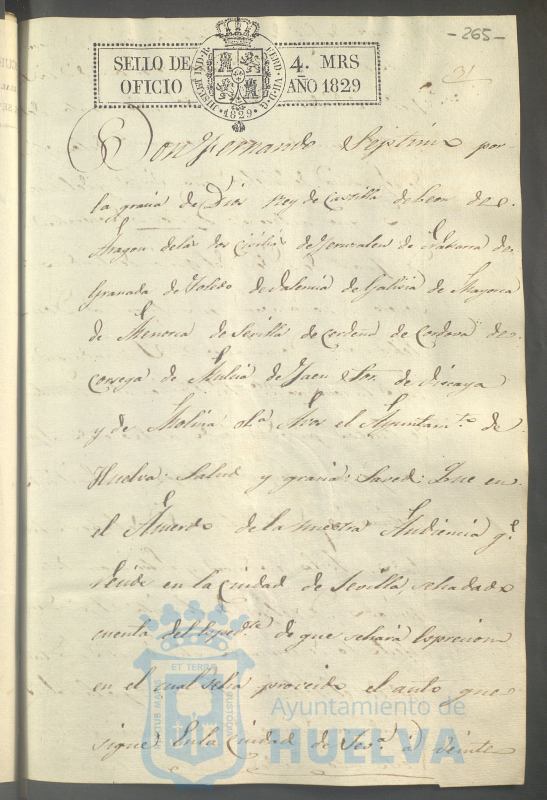 -265-
SELLO DE
OFICIO
4. MRS
AÑO 1829
HISP. ET IND. R.
FERD. VII. D. G.
1829
Don Fernando Septimo por
la gracia de Dios Rey de Castilla de Leon de
Aragon delas dos Cicilias de Jerusalen de Nabarra de
Granada de Toledo de Valencia de Galicia de Mayorca
de Menorca de Sevilla de Cerdeña de Cordova de
Corsega de Murcia de Jaen Sor. de Viscaya
y de Molina &a. A vos el Ayuntam.to de
Huelva: Salud y gracia: Saved: Que en
el Acuerdo de la nuestra Audiencia q.e
reside en la Ciudad de Sevilla, se ha dado
cuenta del Exped.te de que se hará Expresion
en el cual se ha proveido el auto que
sigue En la Ciudad de Sev.a á veinte
ET TERRA
PORTUS MARIS
CUSTODIA
Ayuntamiento de
HUELVA